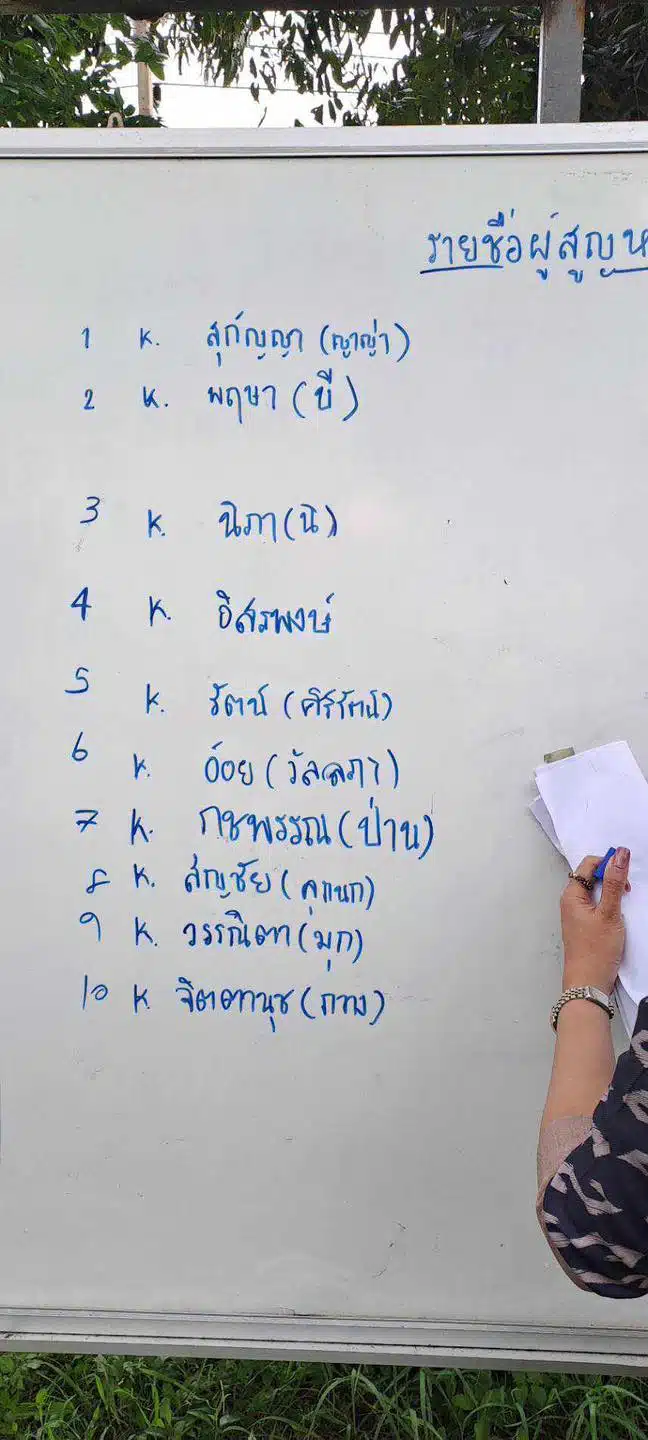 รายชื่อผู้สูญห
1 K. สุกัญญา (ญาญ่า)
2 K. พฤษา (บี)
3 K. นิภา (นิ)
4 K. อิสรพงษ์
5 K. รัตน์ (ศิริรัตน์)
6 K. อ้อย (วัลลภา)
7 K. กชพรรณ (ป่าน)
8 K. สัญชัย
9 K. วรรณิตา (มุก)
10 K จิตตานุช (กวาง)